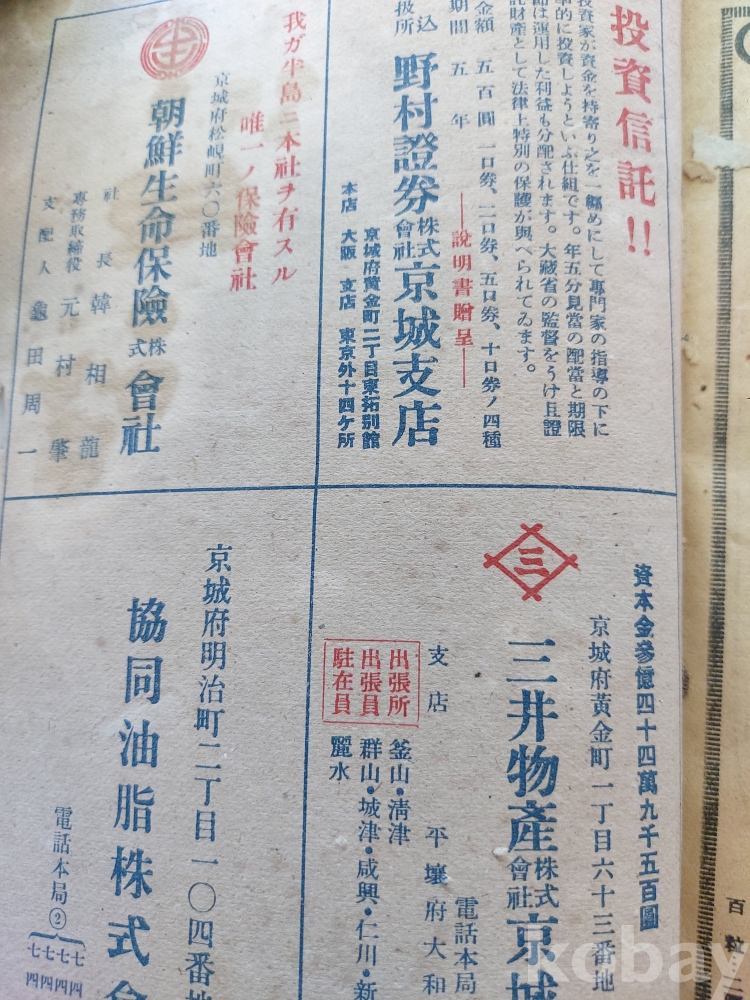 投資信託!!
投資家が資金を持寄り之を一纏めにして專門家の指導の下に
的に投資しようといふ仕組です。年五分見當の配當と期限
は運用した利益も分配されます。大藏省の監督をうけ且證
託財產として法律上特別の保護が與へられてゐます。
金額 五百圓 一口券、二口券、五口券、十口券ノ四種
期間 五年
―說明書贈呈―
込
扱所
野村證券株式會社京城支店
京城府黃金町二丁目東拓別館
本店 大阪 支店 東京外十四ケ所
我ガ半島ニ本社ヲ有スル
唯一ノ保險會社
京城府松峴町六〇番地
朝鮮生命保險株式會社
社長 韓相龍
專務取締役 元村肇
支配人 龜田周一
資本金參億四十四萬九千五百圓
京城府黃金町一丁目六十三番地
三
三井物產株式會社京城
電話本局
支店 平壤府大和
出張所 釜山・淸津
出張員 群山・城津・咸興・仁川・新
駐在員 麗水
京城府明治町二丁目一〇四番地
協同油脂株式會
電話本局②
七七七七
四四四四
百粒二
kobay